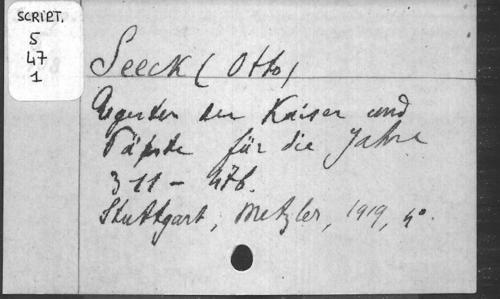 SCRIPT.
5
47
1
Seeck (Otto)
Regesten der Kaiser und
Päpste für die Jahre
311 – 476.
Stuttgart, Metzler, 1919, 4°.